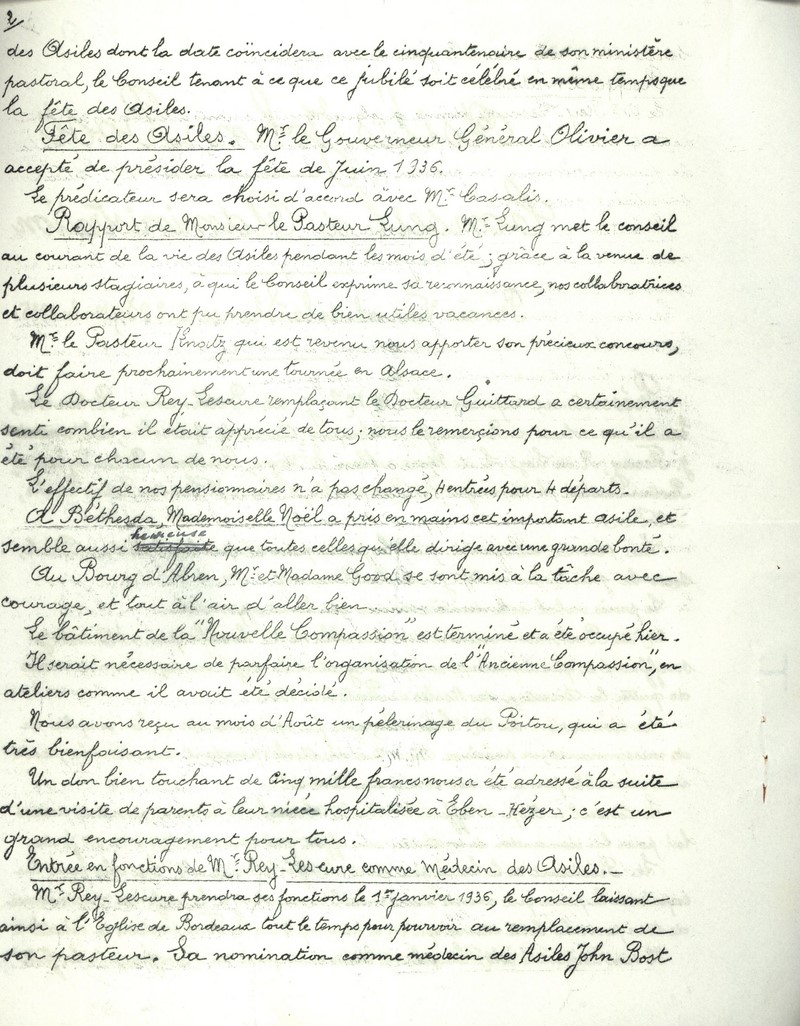 2/
des Asiles dont la date coïncidera avec le cinquantenaire de son ministère
pastoral, le Conseil tenant à ce que ce jubilé soit célébré en même temps que
la fête des Asiles.
Fête des Asiles. Mr le Gouverneur Général Olivier a
accepté de présider la fête de Juin 1936.
Le prédicateur sera choisi d'accord avec Mr Casalis.
Rapport de Monsieur le Pasteur Lung. Mr Lung met le conseil
au courant de la vie des Asiles pendant les mois d'été ; grâce à la venue de
plusieurs stagiaires, à qui le Conseil exprime sa reconnaissance, nos collaboratrices
et collaborateurs ont pu prendre de bien utiles vacances.
Mr le Pasteur Knatz qui est revenu nous apporter son précieux concours,
doit faire prochainement une tournée en Alsace.
Le Docteur Rey-Lescure remplaçant le Docteur Guittard a certainement
senti combien il était apprécié de tous ; nous le remerçions pour ce qu'il a
été pour chacun de nous.
L'effectif de nos pensionnaires n'a pas changé, 4 entrées pour 4 départs.
A Béthesda, Mademoiselle Noël a pris en mains cet important asile, et
semble aussi satisfaite heureuse que toutes celles qu'elle dirige avec une grande bonté.
Au Bourg d'Abren, Mr et Madame Good se sont mis à la tâche avec
courage, et tout à l'air d'aller bien.
Le bâtiment de la "Nouvelle Compassion" est terminé et a été occupé hier.
Il serait nécessaire de parfaire l'organisation de l'"Ancienne Compassion", en
ateliers comme il avait été décidé.
Nous avons reçu au mois d'Août un pélerinage du Poitou, qui a été
très bienfaisant.
Un don bien touchant de Cinq mille francs nous a été adressé à la suite
d'une visite de parents à leur nièce hospitalisée à Eben-Hézer ; c'est un
grand encouragement pour tous.
Entrée en fonctions de Mr Rey-Lescure comme Médecin des Asiles.-
Mr Rey-Lescure prendra ses fonctions le 1er janvier 1936, le Conseil laissant
ainsi à l'Eglise de Bordeaux tout le temps pour pourvoir au remplacement de
son pasteur. Sa nomination comme médecin des Asiles John Bost